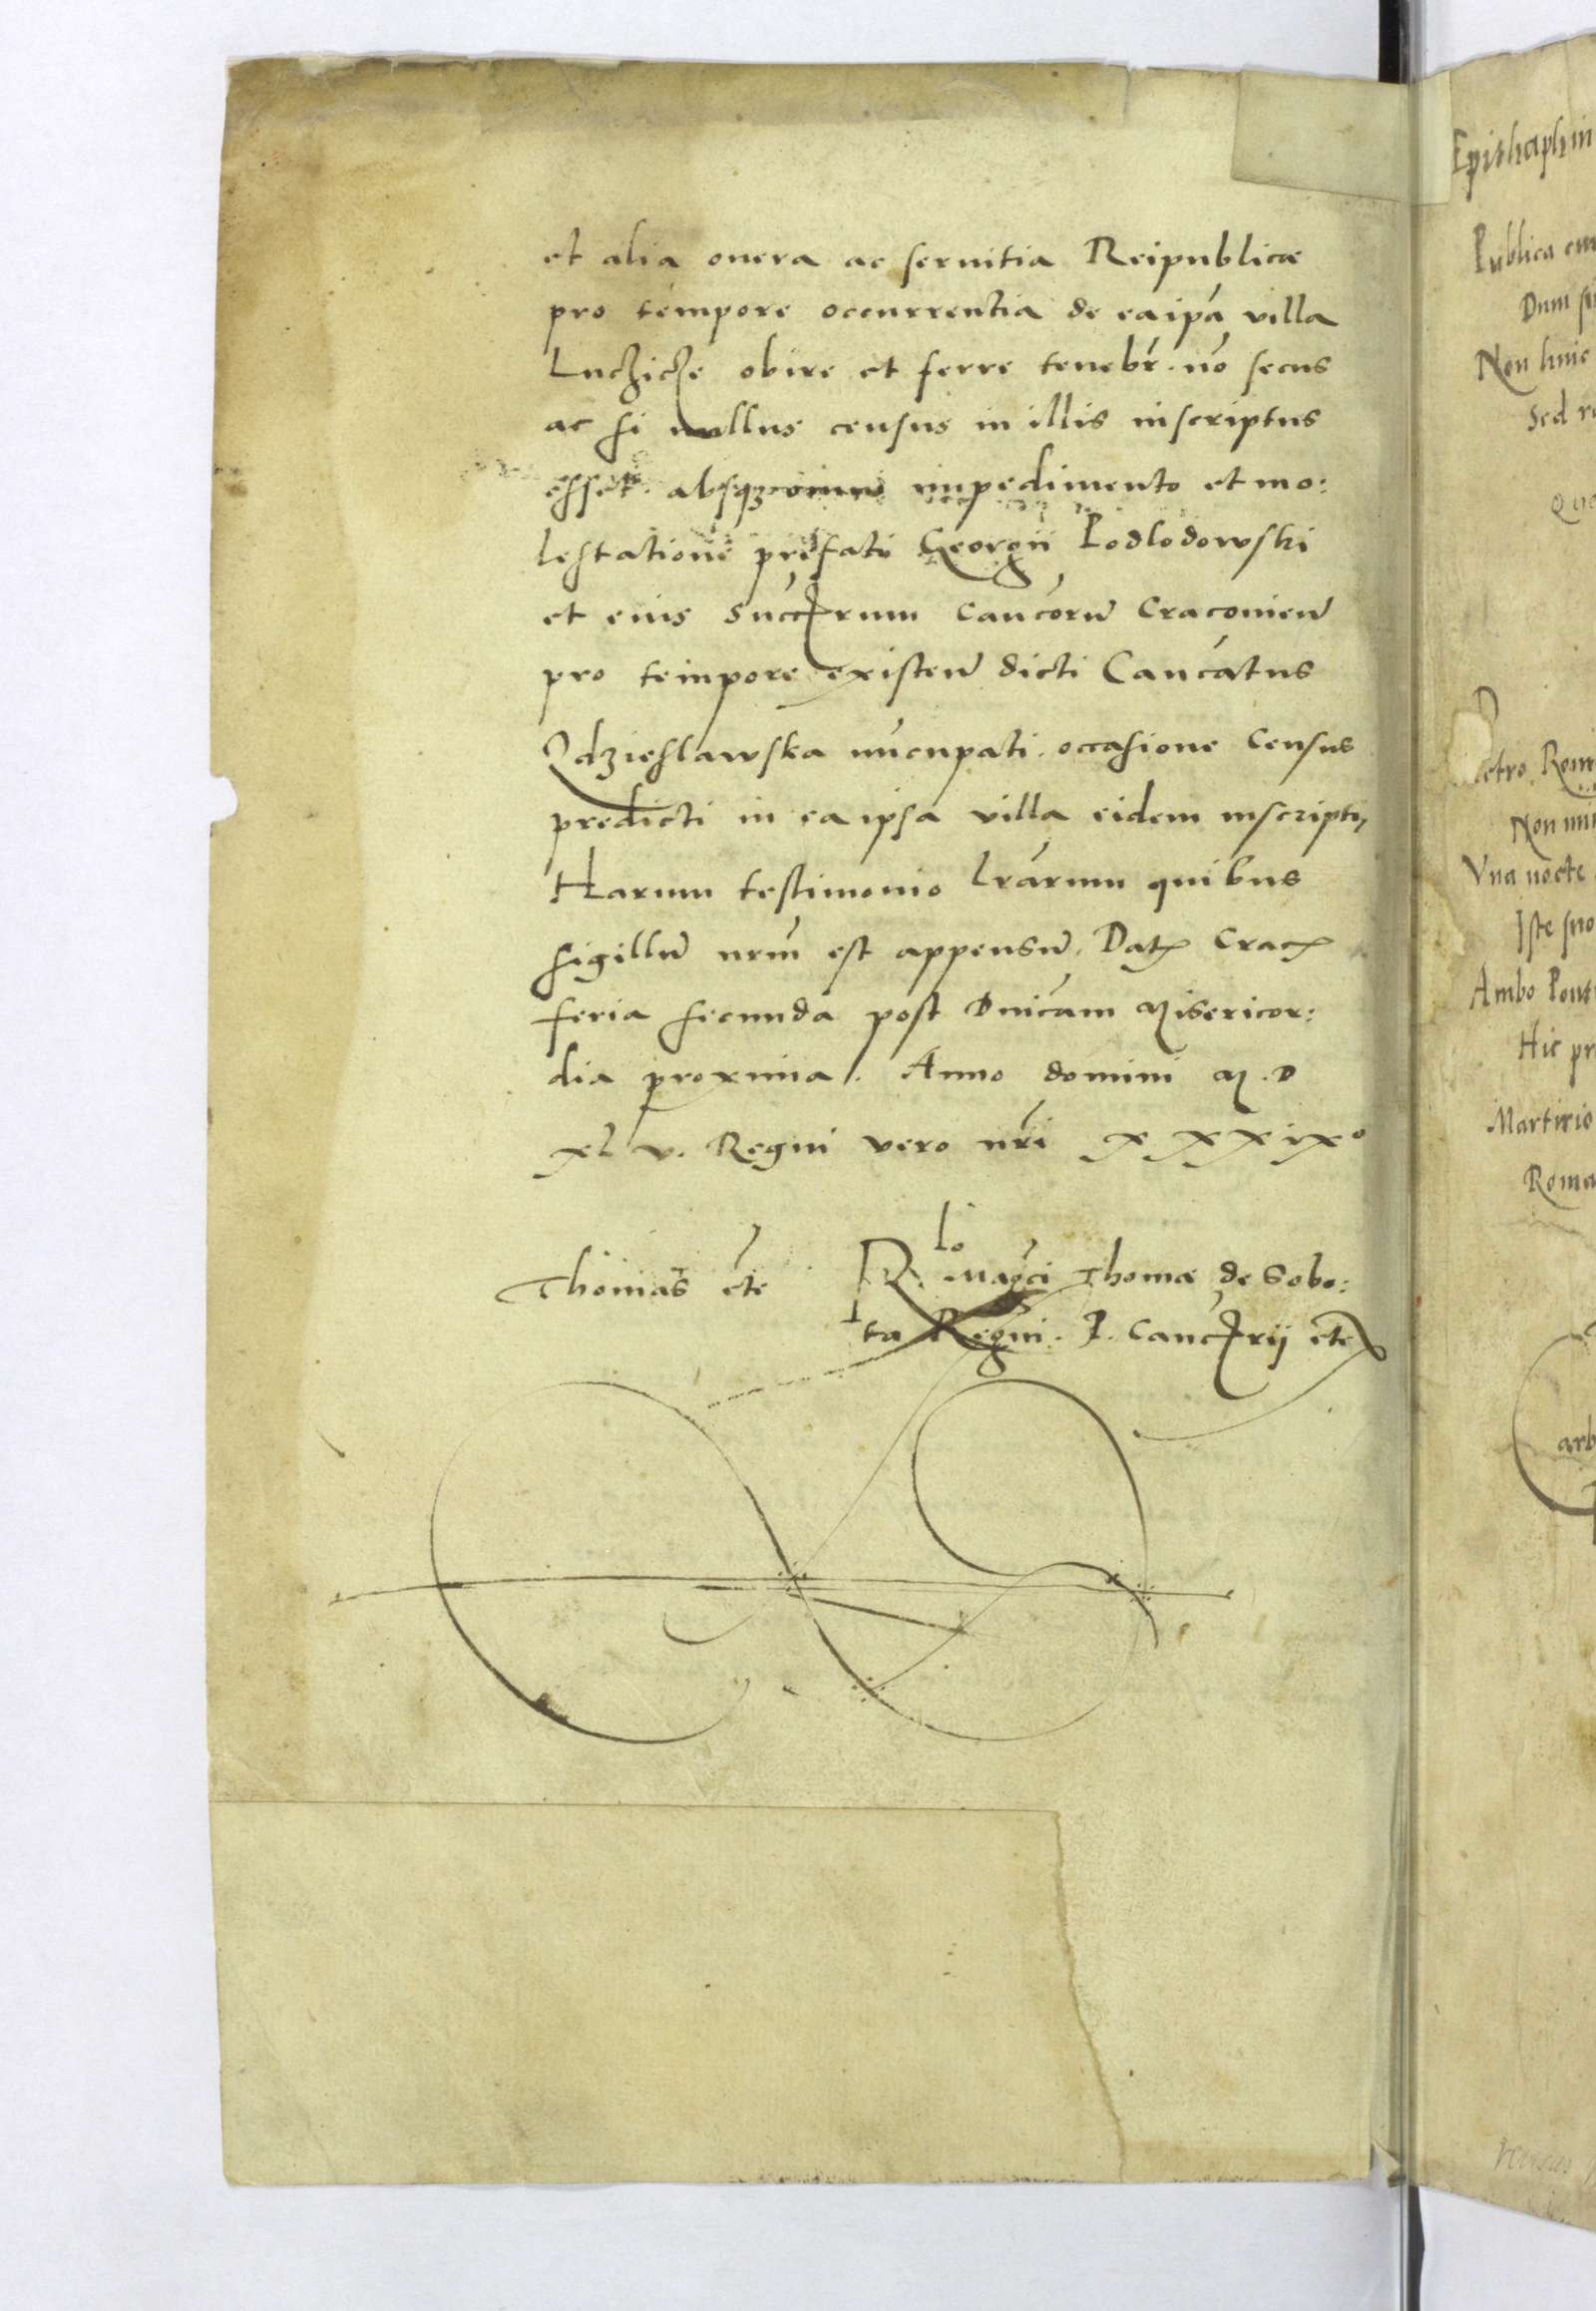 et alia onera ac seruitia Reipublicæ
pro tempore occurrentia de ea ipa villa
Luczicze obire et ferre tenebr. no secus
ac si nullus census in illis inscriptus
esset. absqz omni impedimento et mo:
lestatione prefati Georgii Podlodowski
et eius succrum Cancoru Cracouien
pro tempore existen dicti Cancatus
Qdzieslawska nucupati. occasione Census
predicti in ea ipsa villa eidem inscripti,
Harum testimonio lrarum quibus
sigillu nrm est appensu. Dat Crac
feria secunda post Dnicam Misericor:
dia proxima. Anno domini M.D
xl v. Regni vero nri xxxix°
Thomas etc R lo Magci Thomæ de Sobo:
ta Regni. P. Cancrij etc
Epithaphiu
Publica cu
Dum
Non huic
Sed
etro Rom
Non
Vna nocte
Iste suo
Ambo Pont
Hic pr
Martirio
Roma
arb